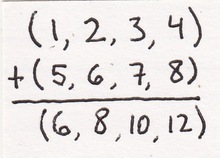 (1, 2, 3, 4)
+(5, 6, 7, 8)
(6, 8, 10, 12)